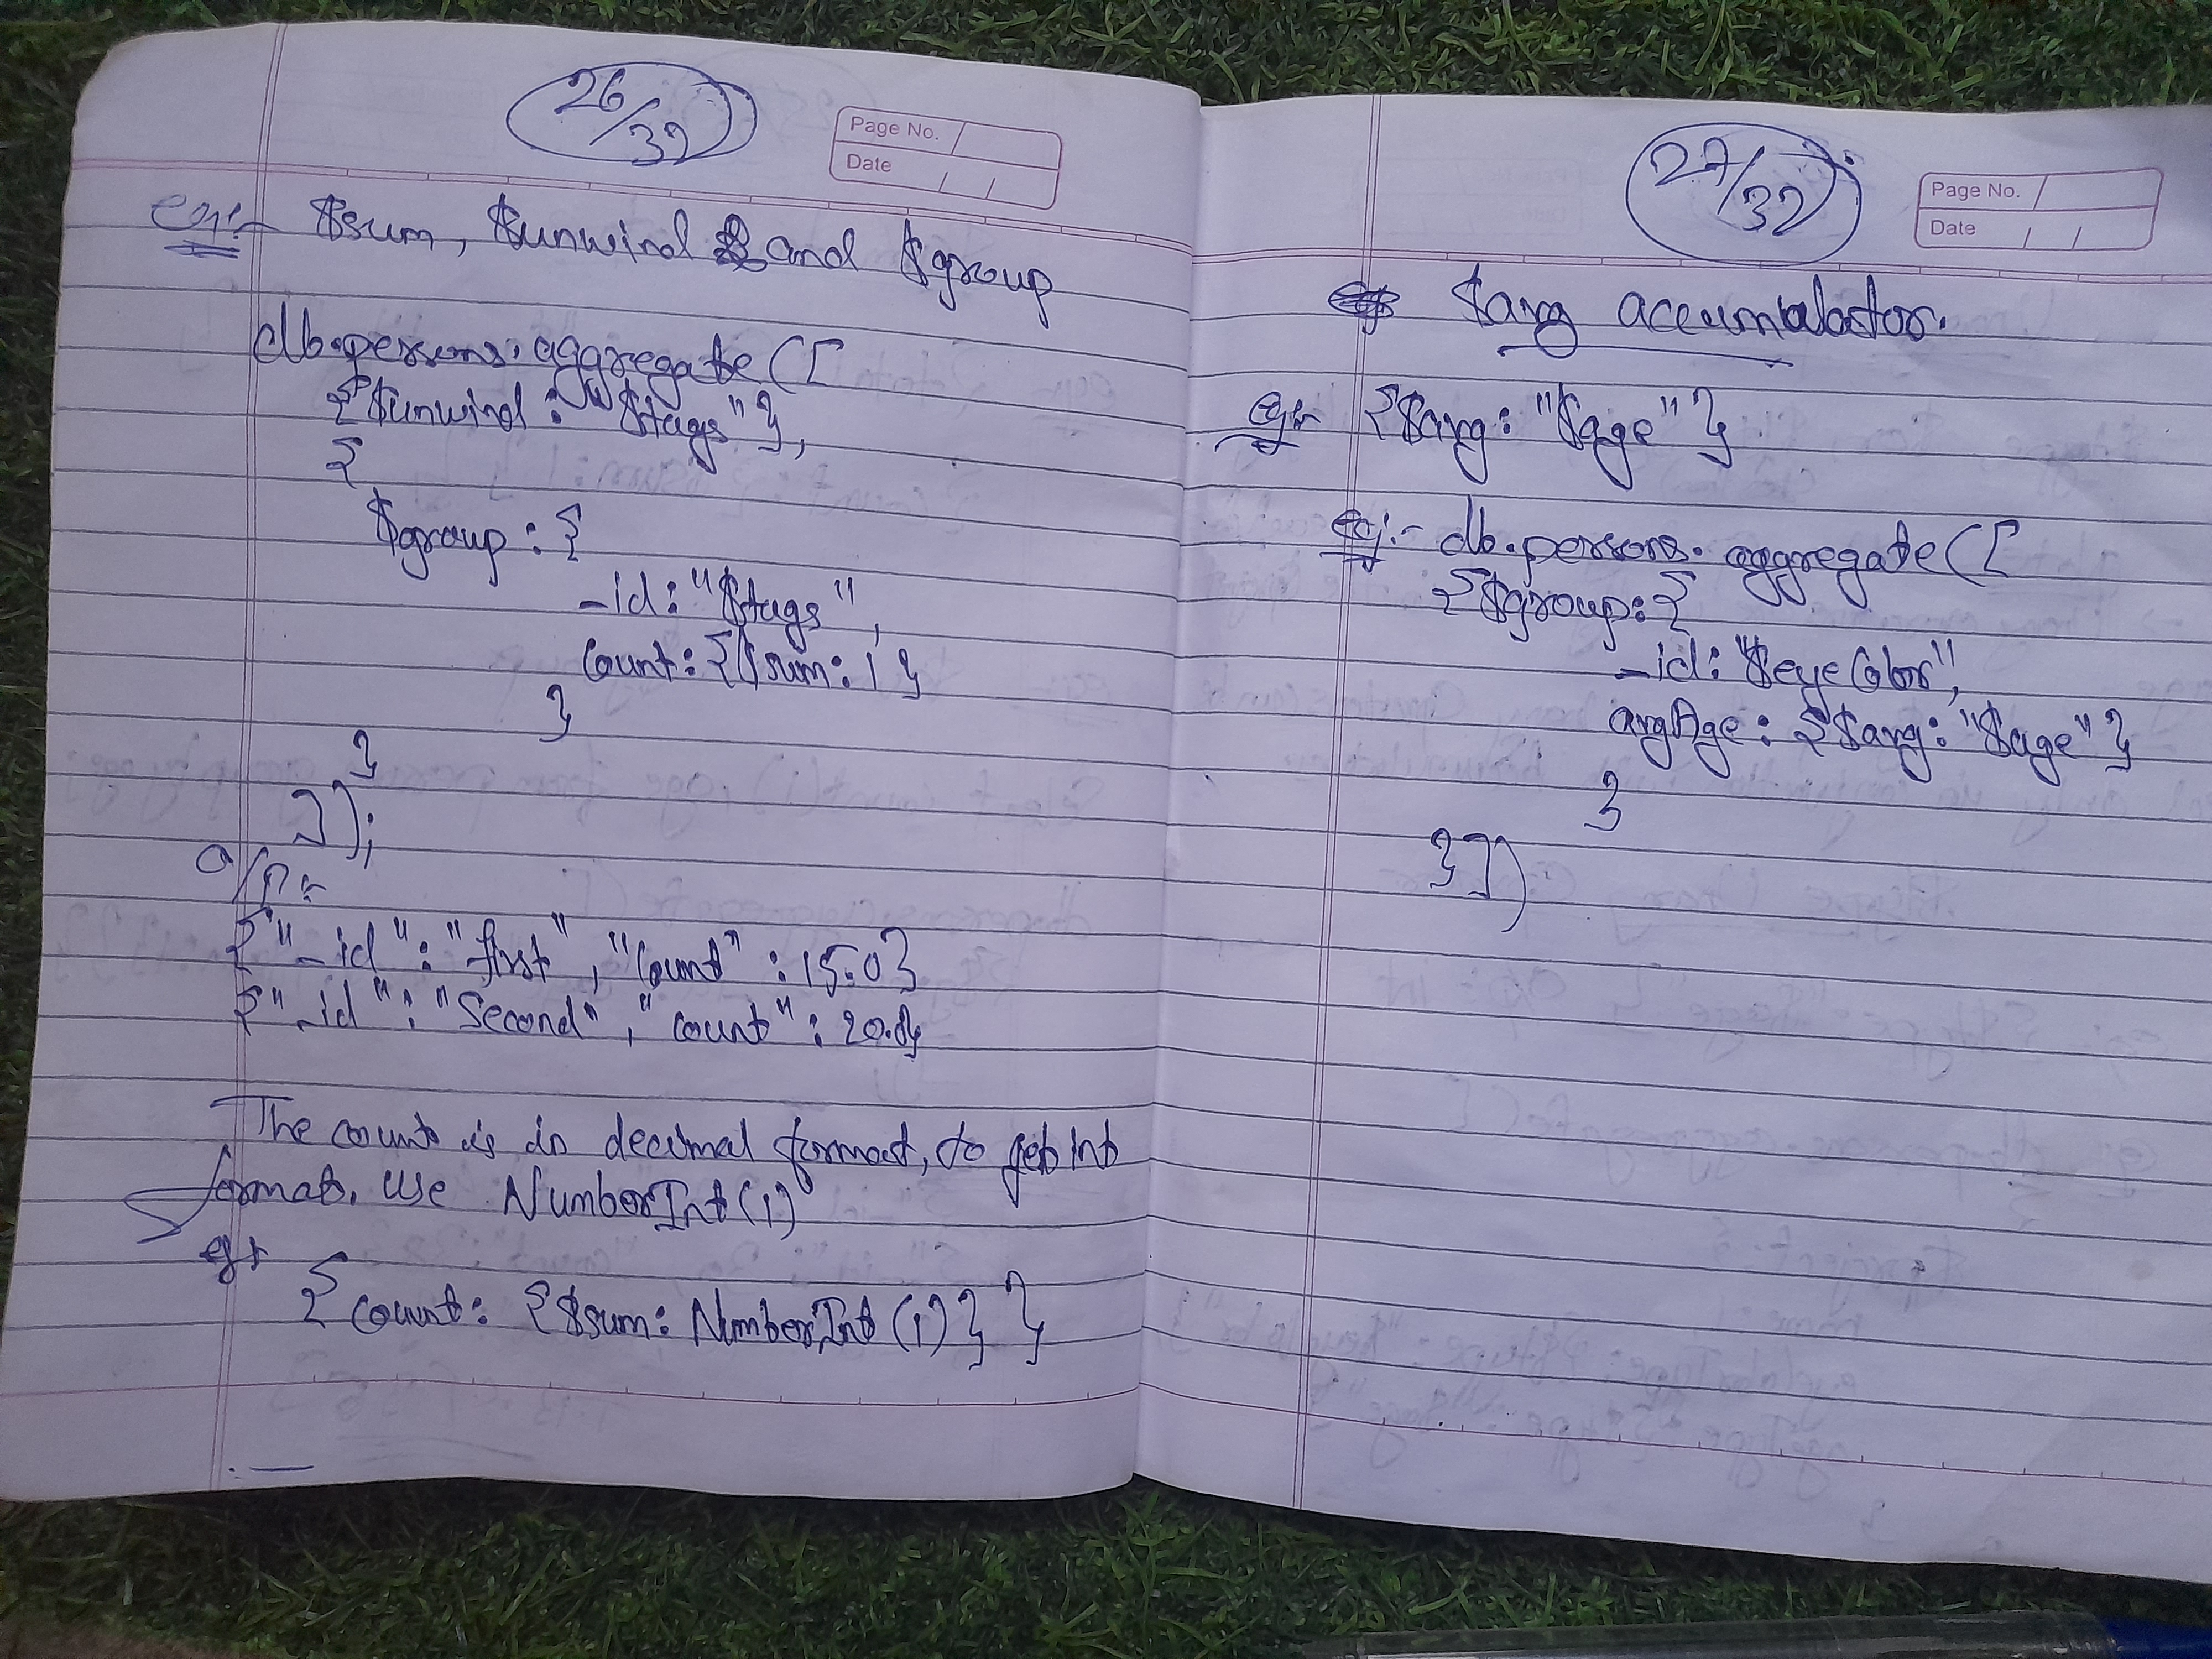 26/32
Page No.
Date / /
eg:- $sum, $unwind and $group
db.persons.aggregate([
{$unwind: "$tags"},
{
$group: {
_id: "$tags"
Count: {$sum: 1}
}
}
]);
O/P:-
{"_id": "first", "Count": 15.0}
{"_id": "Second", "count": 20.0}
The count is in decimal format, to get int
format, use NumberInt(1)
eg:-
{ count: {$sum: NumberInt(1)}}
27/32
Page No.
Date / /
$avg accumulator.
eg:- {$avg: "$age"}
eg:- db.persons.aggregate([
{$group: {
_id: "$eyeColor",
avgAge: {$avg: "$age"}
}
}])